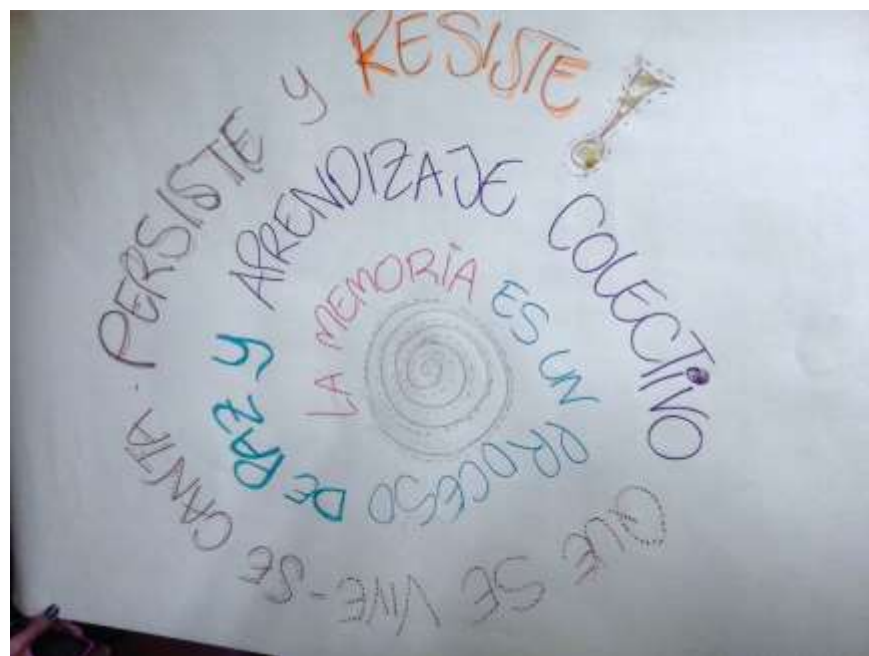 LA MEMORIA ES UN PROCESO DE PAZ Y APRENDIZAJE COLECTIVO QUE SE VIVE - SE CANTA. PERSISTE Y RESISTE!